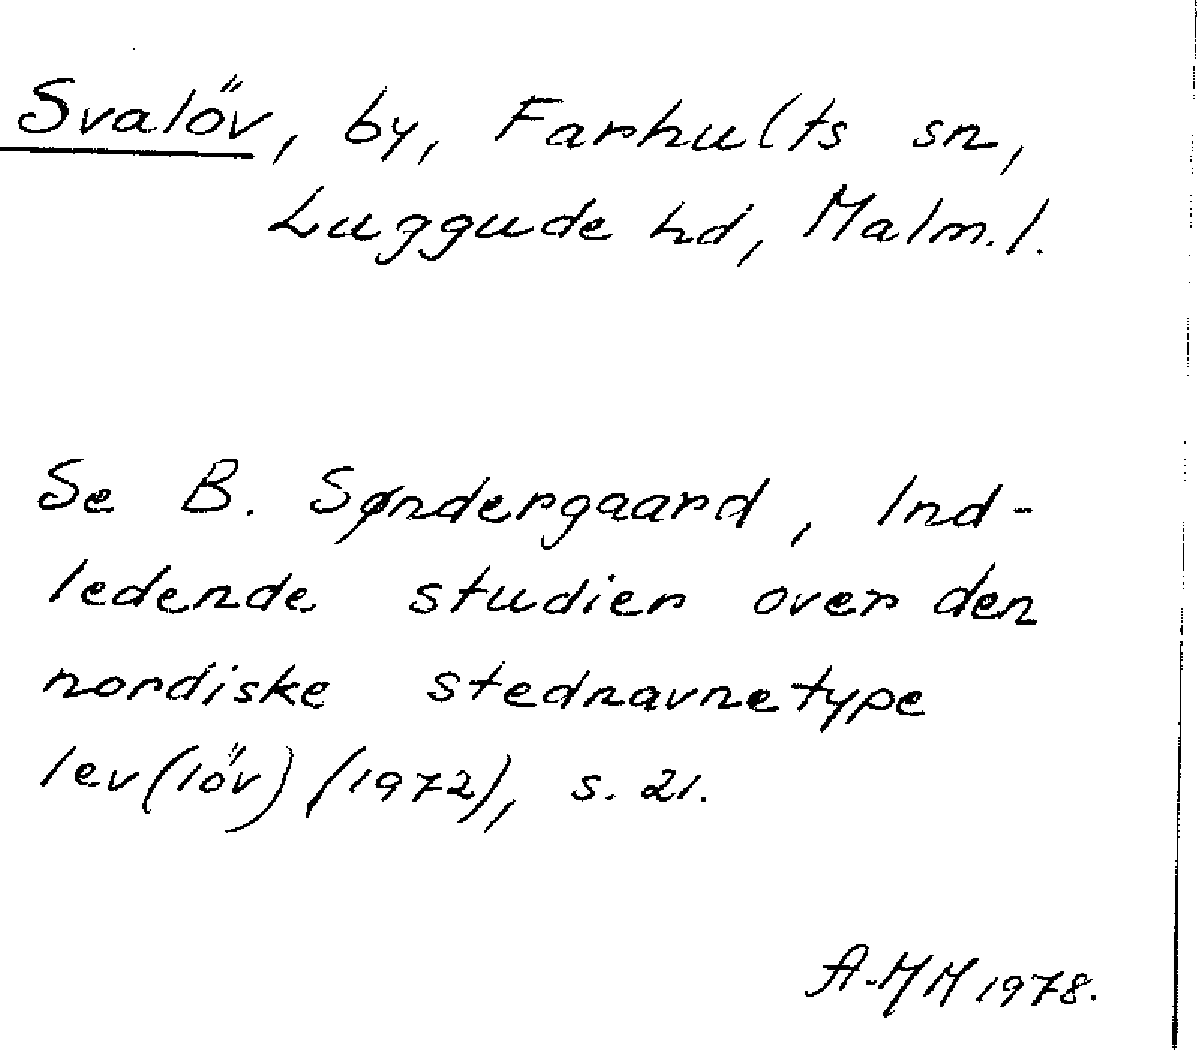 Svalöv, by, Farhults sn,
Luggude hd, Malm.l.
Se B. Søndergaard, Ind-
ledende studier over den
nordiske stednavnetype
lev(löv) (1972), s. 21.
A-MM 1978.